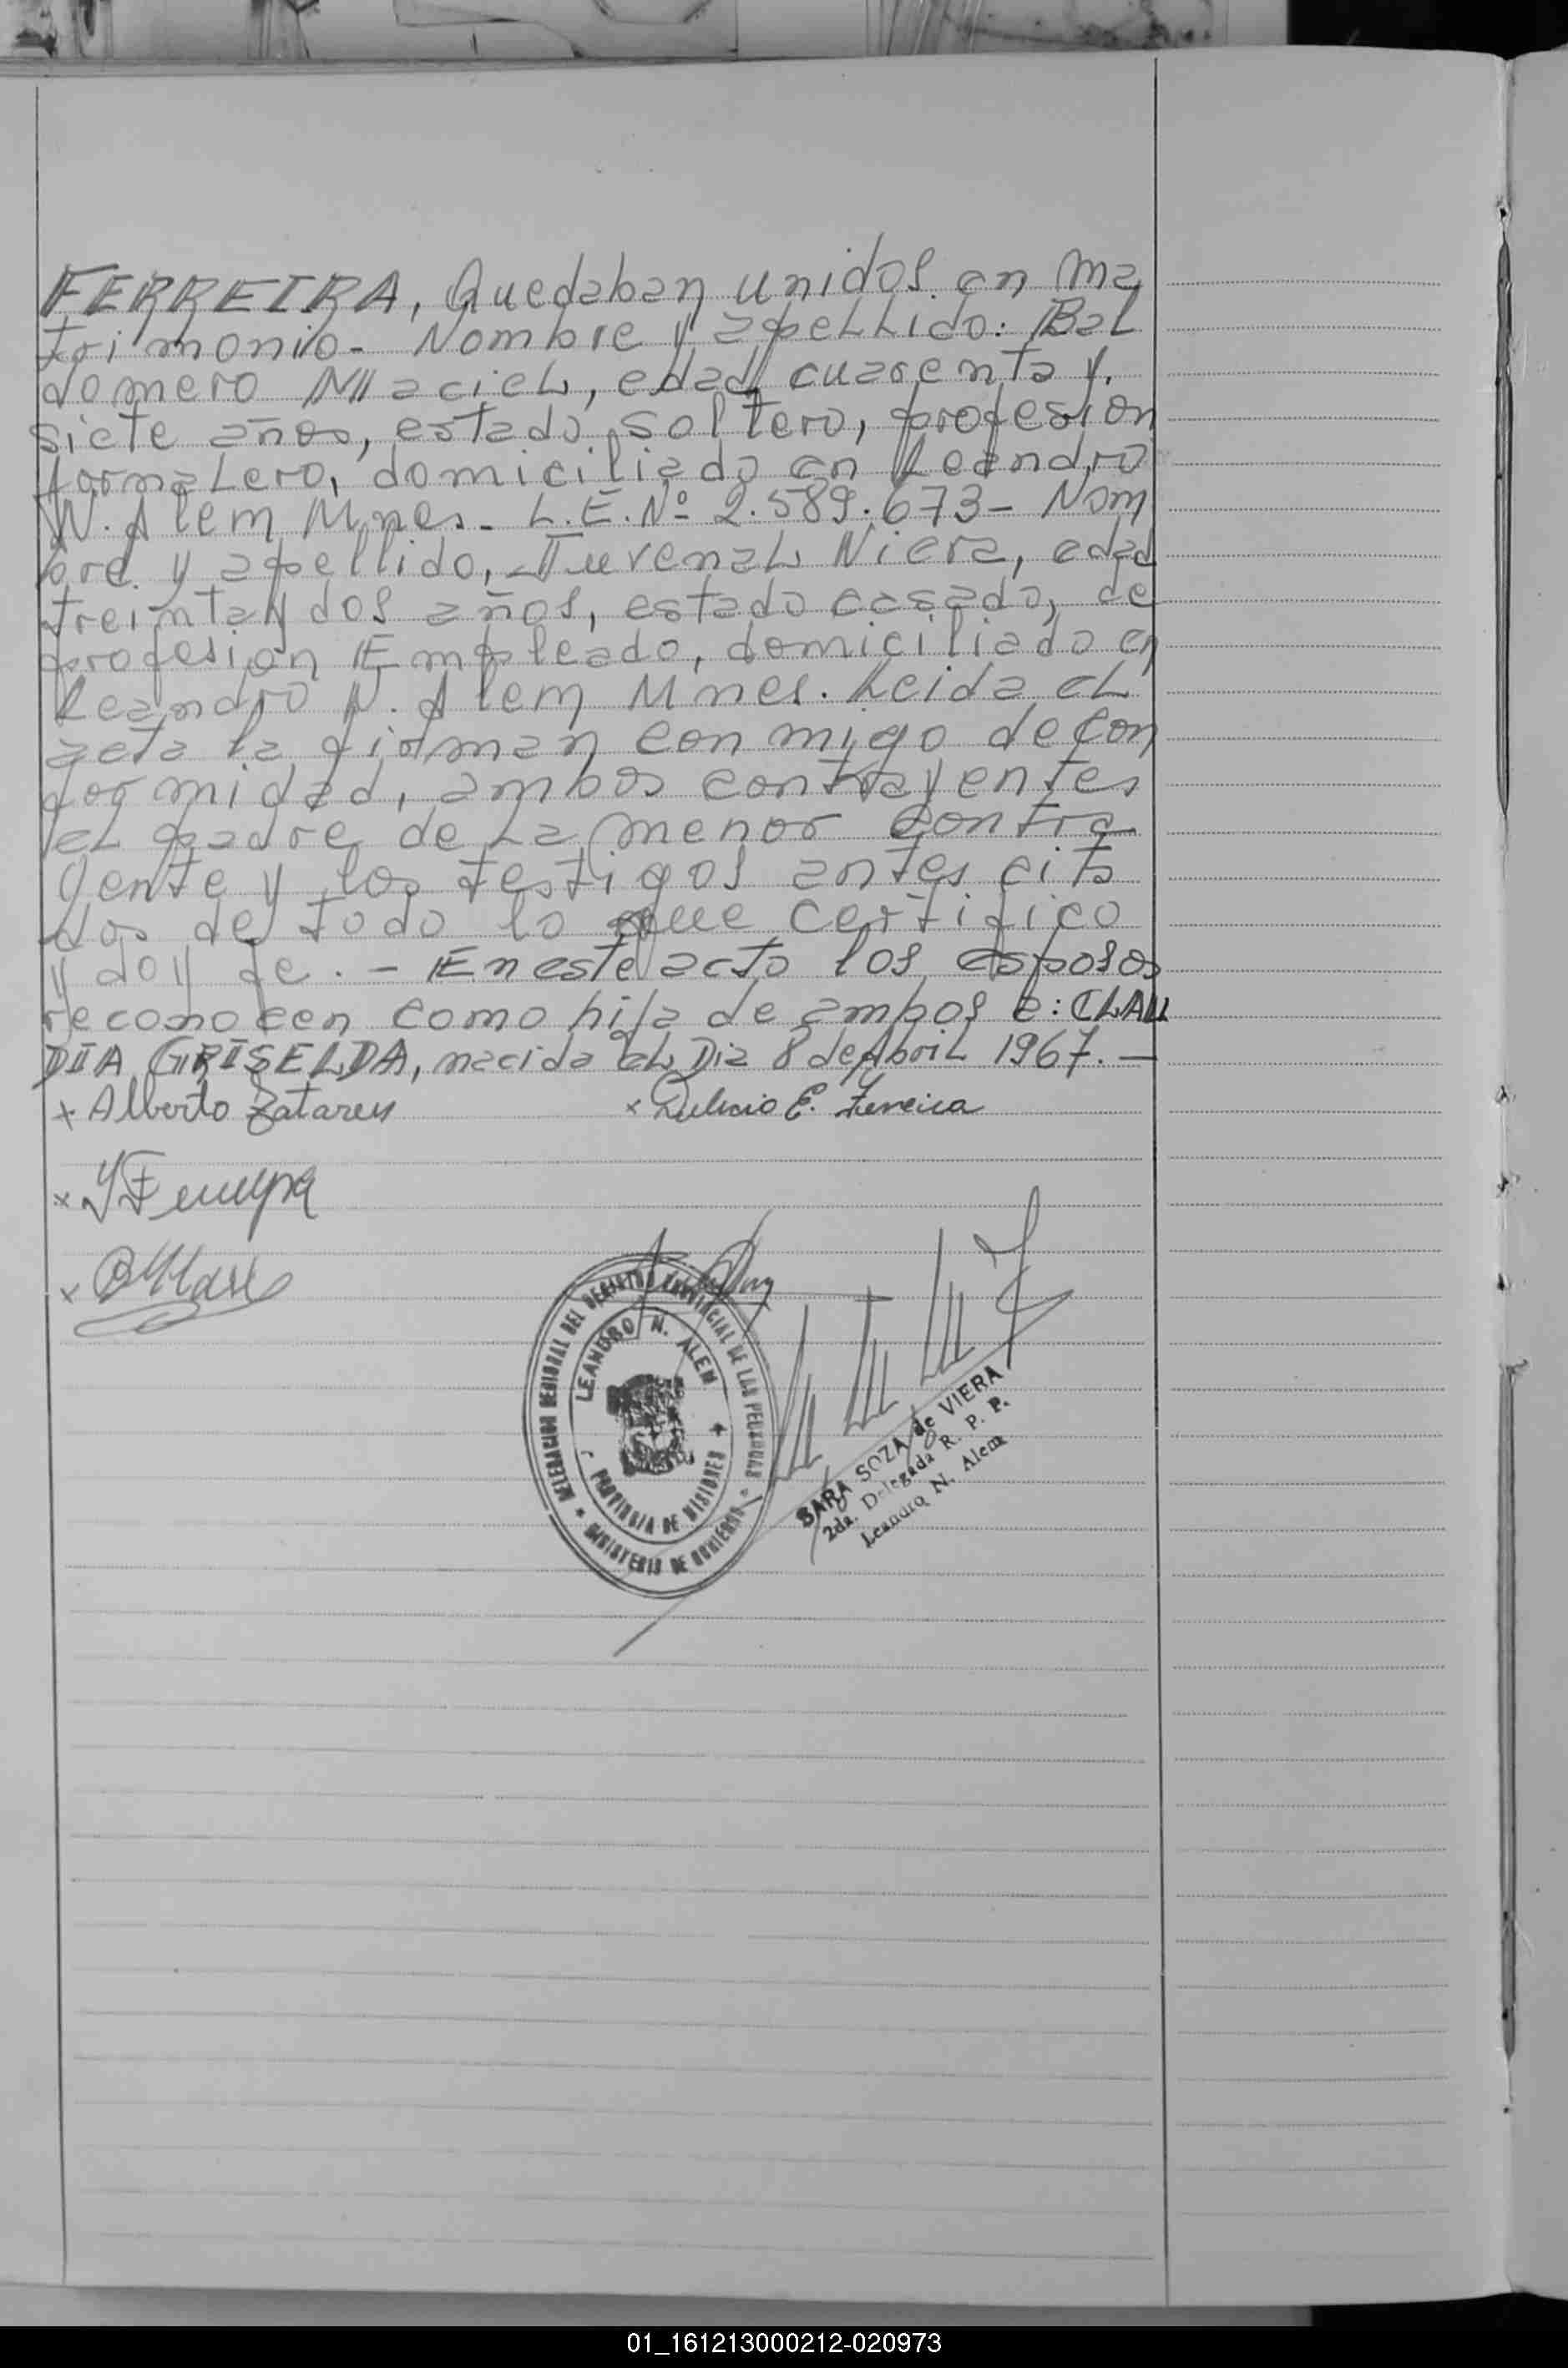 FERREIRA, Quedaban unidos en Ma
trimonio- Nombre y apellido: Bal
domero Maciel, edad cuarenta y
siete años, estado soltero, profesion
Jornalero, domiciliado en Leandro
N. Alem Mnes- L.E.Nº 2.589.673- Nom
bre y apellido, Juvenal Niera, edad
treinta y dos años, estado casado, de
profesion Empleado, domiciliado en
Leandro N. Alem Mnes. Leida el
acta la firman con migo de con
formidad, ambos contrayentes
el padre de la menor contra
yente y los testigos antes cita
dos de todo lo que certifico
y doy fe.- En este acto los esposos
reconocen como hija de ambos a: CLAU
DIA GRISELDA, nacida el Dia 8 de Abril 1967.-
x Alberto Zatareu x Dulicio E. Ferreira
x
x
DELEGACION REGIONAL DEL REGISTRO PROVINCIAL DE LAS PERSONAS
LEANDRO N. ALEM
PROVINCIA DE MISIONES
MINISTERIO DE GOBIERNO
SARA SOZA de VIERA
2da. Delegada R. P. P.
Leandro N. Alem
01_161213000212-020973